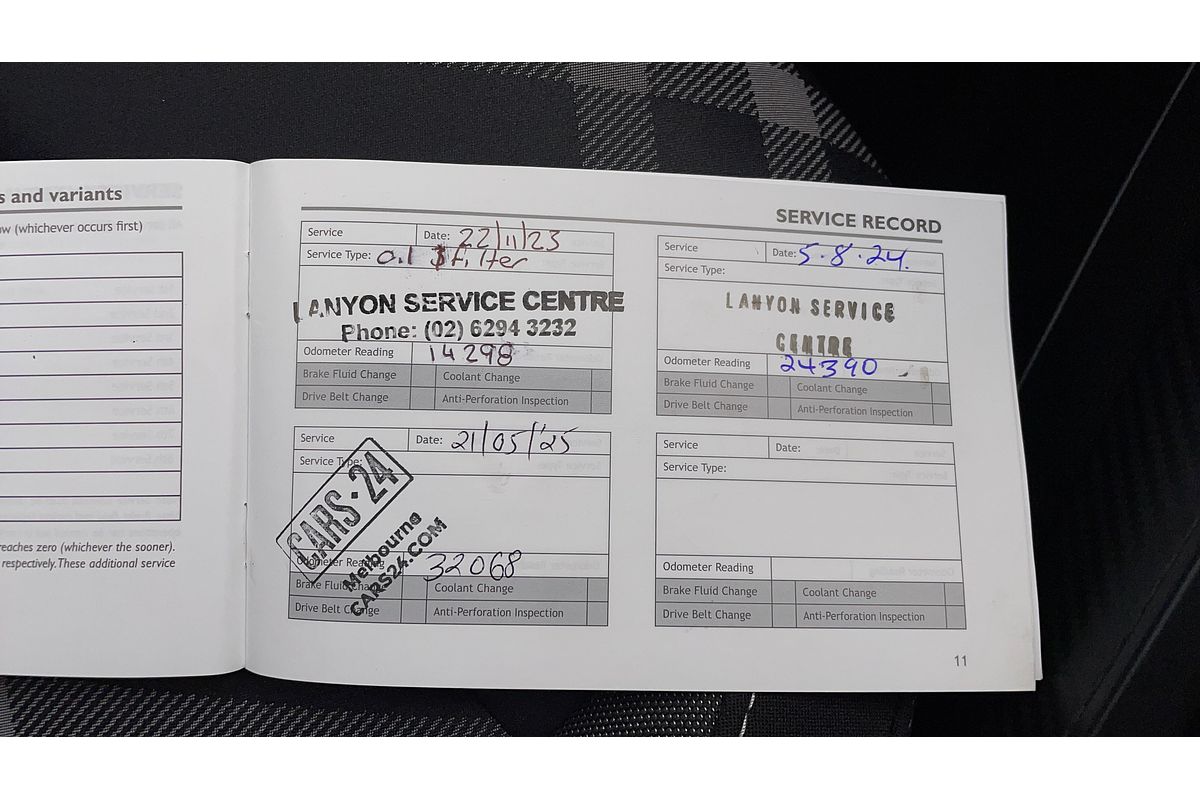 s and variants
ow (whichever occurs first)
reaches zero (whichever the sooner).
respectively. These additional service
SERVICE RECORD
Service
Date: 22/11/23
Service Type: O.l & filter
LANYON SERVICE CENTRE
Phone: (02) 6294 3232
Odometer Reading 14298
Brake Fluid Change Coolant Change
Drive Belt Change Anti-Perforation Inspection
Service
Date: 5.8.24.
Service Type:
LANYON SERVICE
CENTRE
Odometer Reading 24390
Brake Fluid Change Coolant Change
Drive Belt Change Anti-Perforation Inspection
Service
Date: 21/05/'25
Service Type:
CARS·24
Melbourne
CARS24.COM
Odometer Reading 32068
Brake Fluid Change Coolant Change
Drive Belt Change Anti-Perforation Inspection
Service
Date:
Service Type:
Odometer Reading
Brake Fluid Change Coolant Change
Drive Belt Change Anti-Perforation Inspection
11